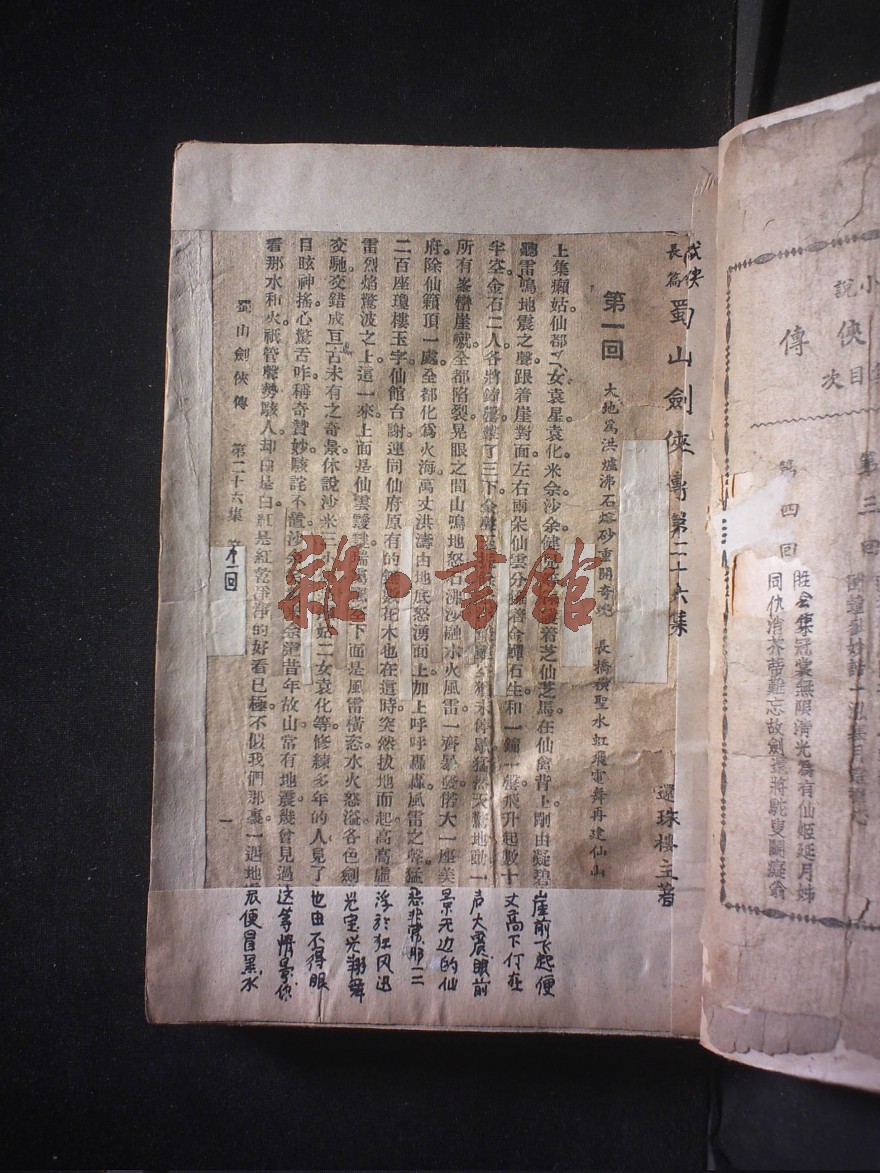 小說
俠
傳
目次
第三回
第四回
勝会集冠裳無限清光為有仙姬延月姊
同仇消芥蒂難忘故劍還將駝叟鬬癡翁
武俠
長篇
蜀山劍俠傳第二十六集
還珠樓主著
第一回
大地為洪爐沸石熔砂重開奇 長橋橫聖水虹飛電舞再建仙山
上集癩姑仙都二女袁星袁化米佘沙余健兒 着芝仙芝馬在仙館背上剛由凝碧崖前飞起便
聽雷鳴地震之聲跟着崖對面左右兩朵仙雲分 着金 石生和一鐘一磬飛升起數十丈高下仃在
半空金石二人各將鐘磬擊了三下金 猛然天驚地動一声大震眼前
所有峯巒崖巘全都陷裂晃眼之間山鳴地怒石沸沙融水火風雷一齊暴發偌大一座美景无边的仙
府除仙籟頂一處全都化為火海萬丈洪濤由地底怒湧而上加上呼呼轟轟風雷之聲猛恶非常那一二
二百座瓊樓玉宇仙館台謝連同仙府原有的 花木也在這時突然拔地而起高高虛浮於狂风迅
雷烈焰驚波之上這一來上面是仙雲靉靆瑞靄 下面是風雷橫恣水火怒溢各色劍光宝光翔舞
交馳交錯成亘古未有之奇景休說沙米三 姑二女袁化等修練多年的人見了也由不得眼
目眩神搖心驚舌咋稱奇贊妙駭詫不置沙余 余罪昔年故山常有地震幾曾見過这等情景你
看那水和火祇管聲勢駭人却白是白紅是紅乾乾淨淨的好看已極不似我們那裏一遇地震便冒黑水
蜀山劍俠傳 第二十六集 第一回
一
雜·書館